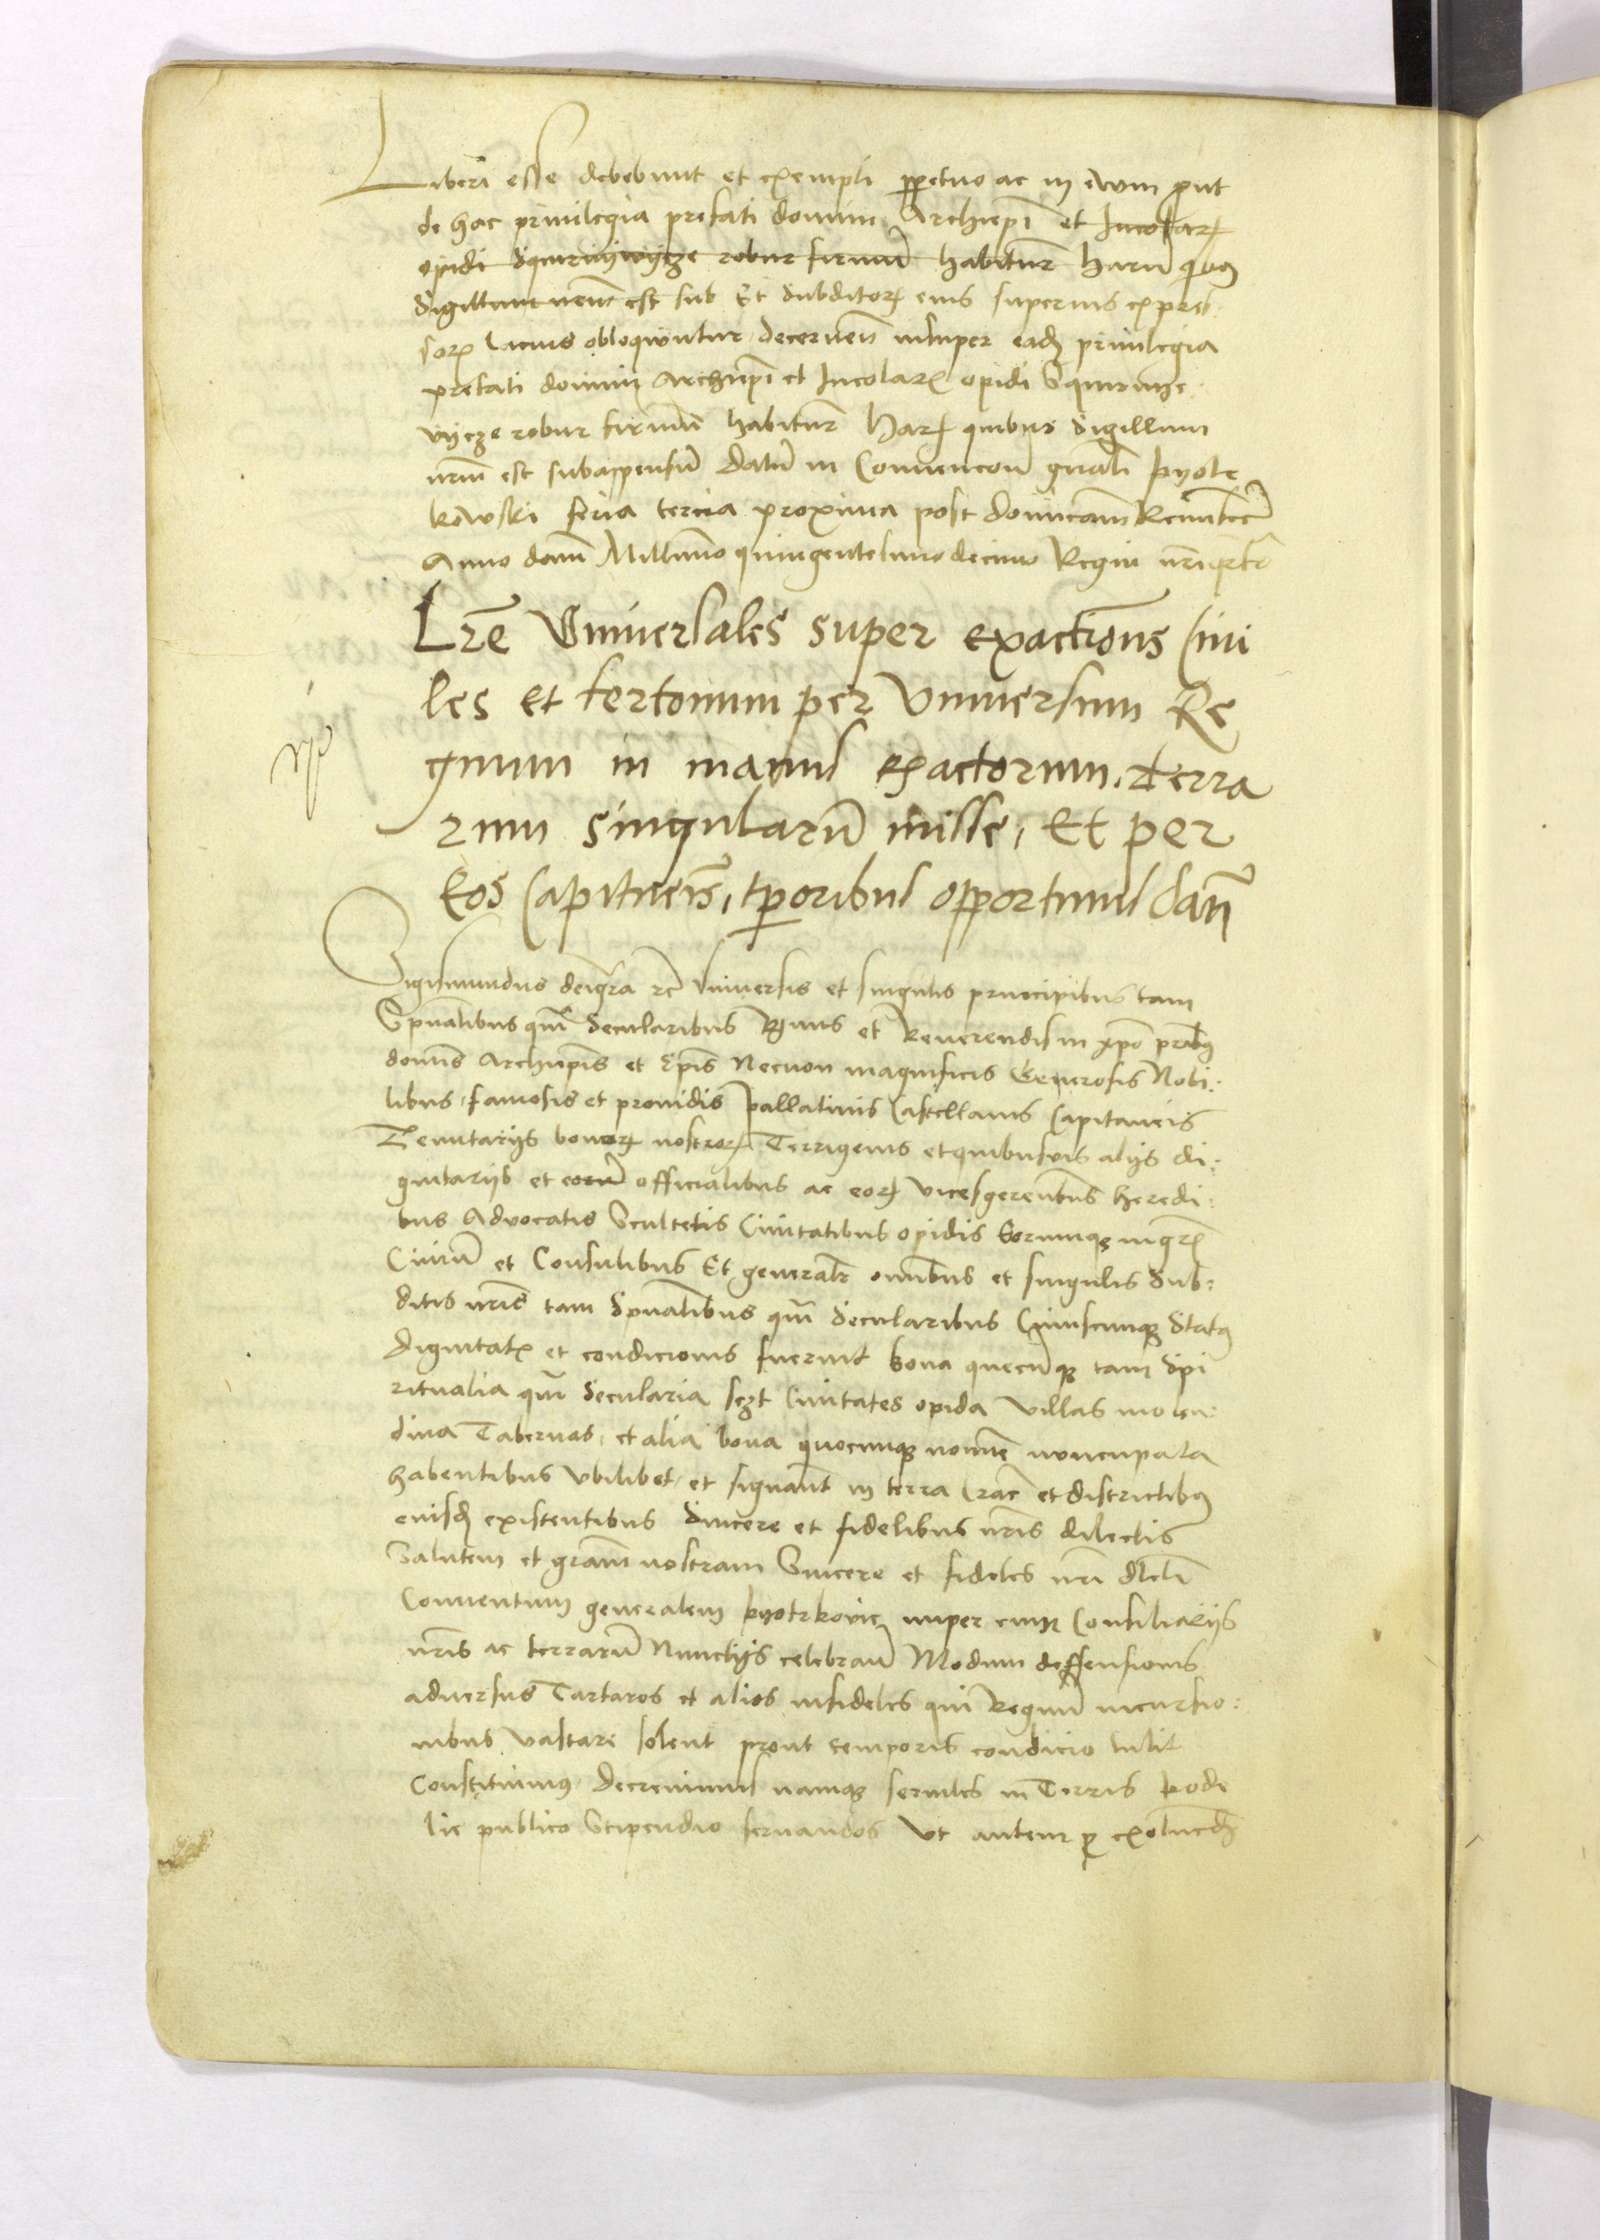 Liberi esse debebunt et exempti ppetuo ac in ewm put
de hac privilegia prefati domini Archiepi et Incolarꝝ
opidi Squirnyewycze robur firmũ habitur harũ quibꝫ
Sigillum nrm est sub Et Subditorꝝ eius superius expres
sorꝝ lacius obloquuntur decernen insuper eadꝫ privilegia
prefati domini Archiepi et Incolarꝝ opidi Squirnye
vycze robur firmũ habitur Harꝝ quibus Sigillum
nrm est subappensũ Datũ in Convencon gnali Pyotr
kowski feria tercia proxima post dominicam Reminiscer
Anno domi Millimo quingentesimo decimo Regni nri qrto
Lre Universales super exactions Civi
les et fertonum per Universum Re
gnum in manus exactorum, terra
rum singularũ misse, Et per
Eos Capitneis, tporibus opportunis dan
Sigismundus dei gra rc Universis et singulis principibus tam
Spualibus qm̃ Secularibus Rmis et Reverendis in xpo prib
domis Archiepis et Epis Necnon magnificis Generosis Nobi:
libus, famosis et providis Pallatinis Castellanis Capitaneis
Tenutariis bonorꝝ nostrorꝝ Terrigenis et quibusvis alijs di:
gnitarijs et eorũ officialibus ac eorꝝ vicesgerentibus heredi:
bus Advocatis Scultetis Civitatibus opidis Eorumqꝫ mgrꝝ
Civiũ et Consulibus Et generalr omibus et singulis Sub:
ditis nris tam Spualibus qm̃ Secularibus Cuiuscunqꝫ Statꝰ
dignitatꝭ et condicionis fuerint bona quecũqꝫ tam Spi
ritualia qm̃ Secularia sczt Civitates opida villas molen:
dina Tabernas, et alia bona quocunqꝫ nomine nuncupata
habentibus ubilibet, et signant in terra Crac et districtibꝫ
eiusdꝫ existentibus Sincere et fidelibus nris dilectis
Salutem et gram nostram Sincere et fideles nri dlcti
Conventum generalem Pyotrkovie nuper cum Consiliariis
nris ac terrarũ Nunctijs celebravi Modum deffensionis
adversus Tartaros et alios infideles qui Regnũ incursio:
nibus vastare solent prout temporis condicio tulit
Constituimꝰ, decrevimus namqꝫ serviles in Terris Podo
lie publico Stipendio servandos Ut autem p exolvendꝫ